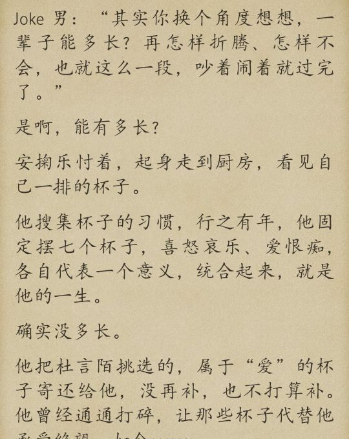 Joke 男：“其实你换个角度想想，一
辈子能多长？再怎样折腾、怎样不
会，也就这么一段，吵着闹着就过完
了。”
是啊，能有多长？
安掬乐忖着，起身走到厨房，看见自
己一排的杯子。
他搜集杯子的习惯，行之有年，他固
定摆七个杯子，喜怒哀乐、爱恨痴，
各自代表一个意义，统合起来，就是
他的一生。
确实没多长。
他把杜言陌挑选的，属于“爱”的杯
子寄还给他，没再补，也不打算补。
他曾经通通打碎，让那些杯子代替他